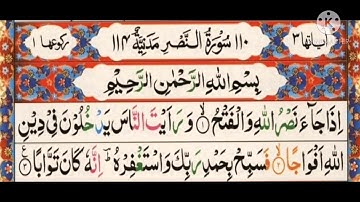 اٰیاتها ٣ ١١٠ سُوْرَةُ النَّصْرِ مَدَنِيَّةٌ ١١٤ رکوعها ١
بِسْمِ اللهِ الرَّحْمٰنِ الرَّحِيْمِ
اِذَا جَآءَ نَصْرُ اللهِ وَالْفَتْحُ ۙ﴿١﴾ وَرَاَيْتَ النَّاسَ يَدْخُلُوْنَ فِيْ دِيْنِ
اللهِ اَفْوَاجًا ۙ﴿٢﴾ فَسَبِّحْ بِحَمْدِ رَبِّكَ وَاسْتَغْفِرْهُ ؕ اِنَّهٗ كَانَ تَوَّابًا ﴿٣﴾